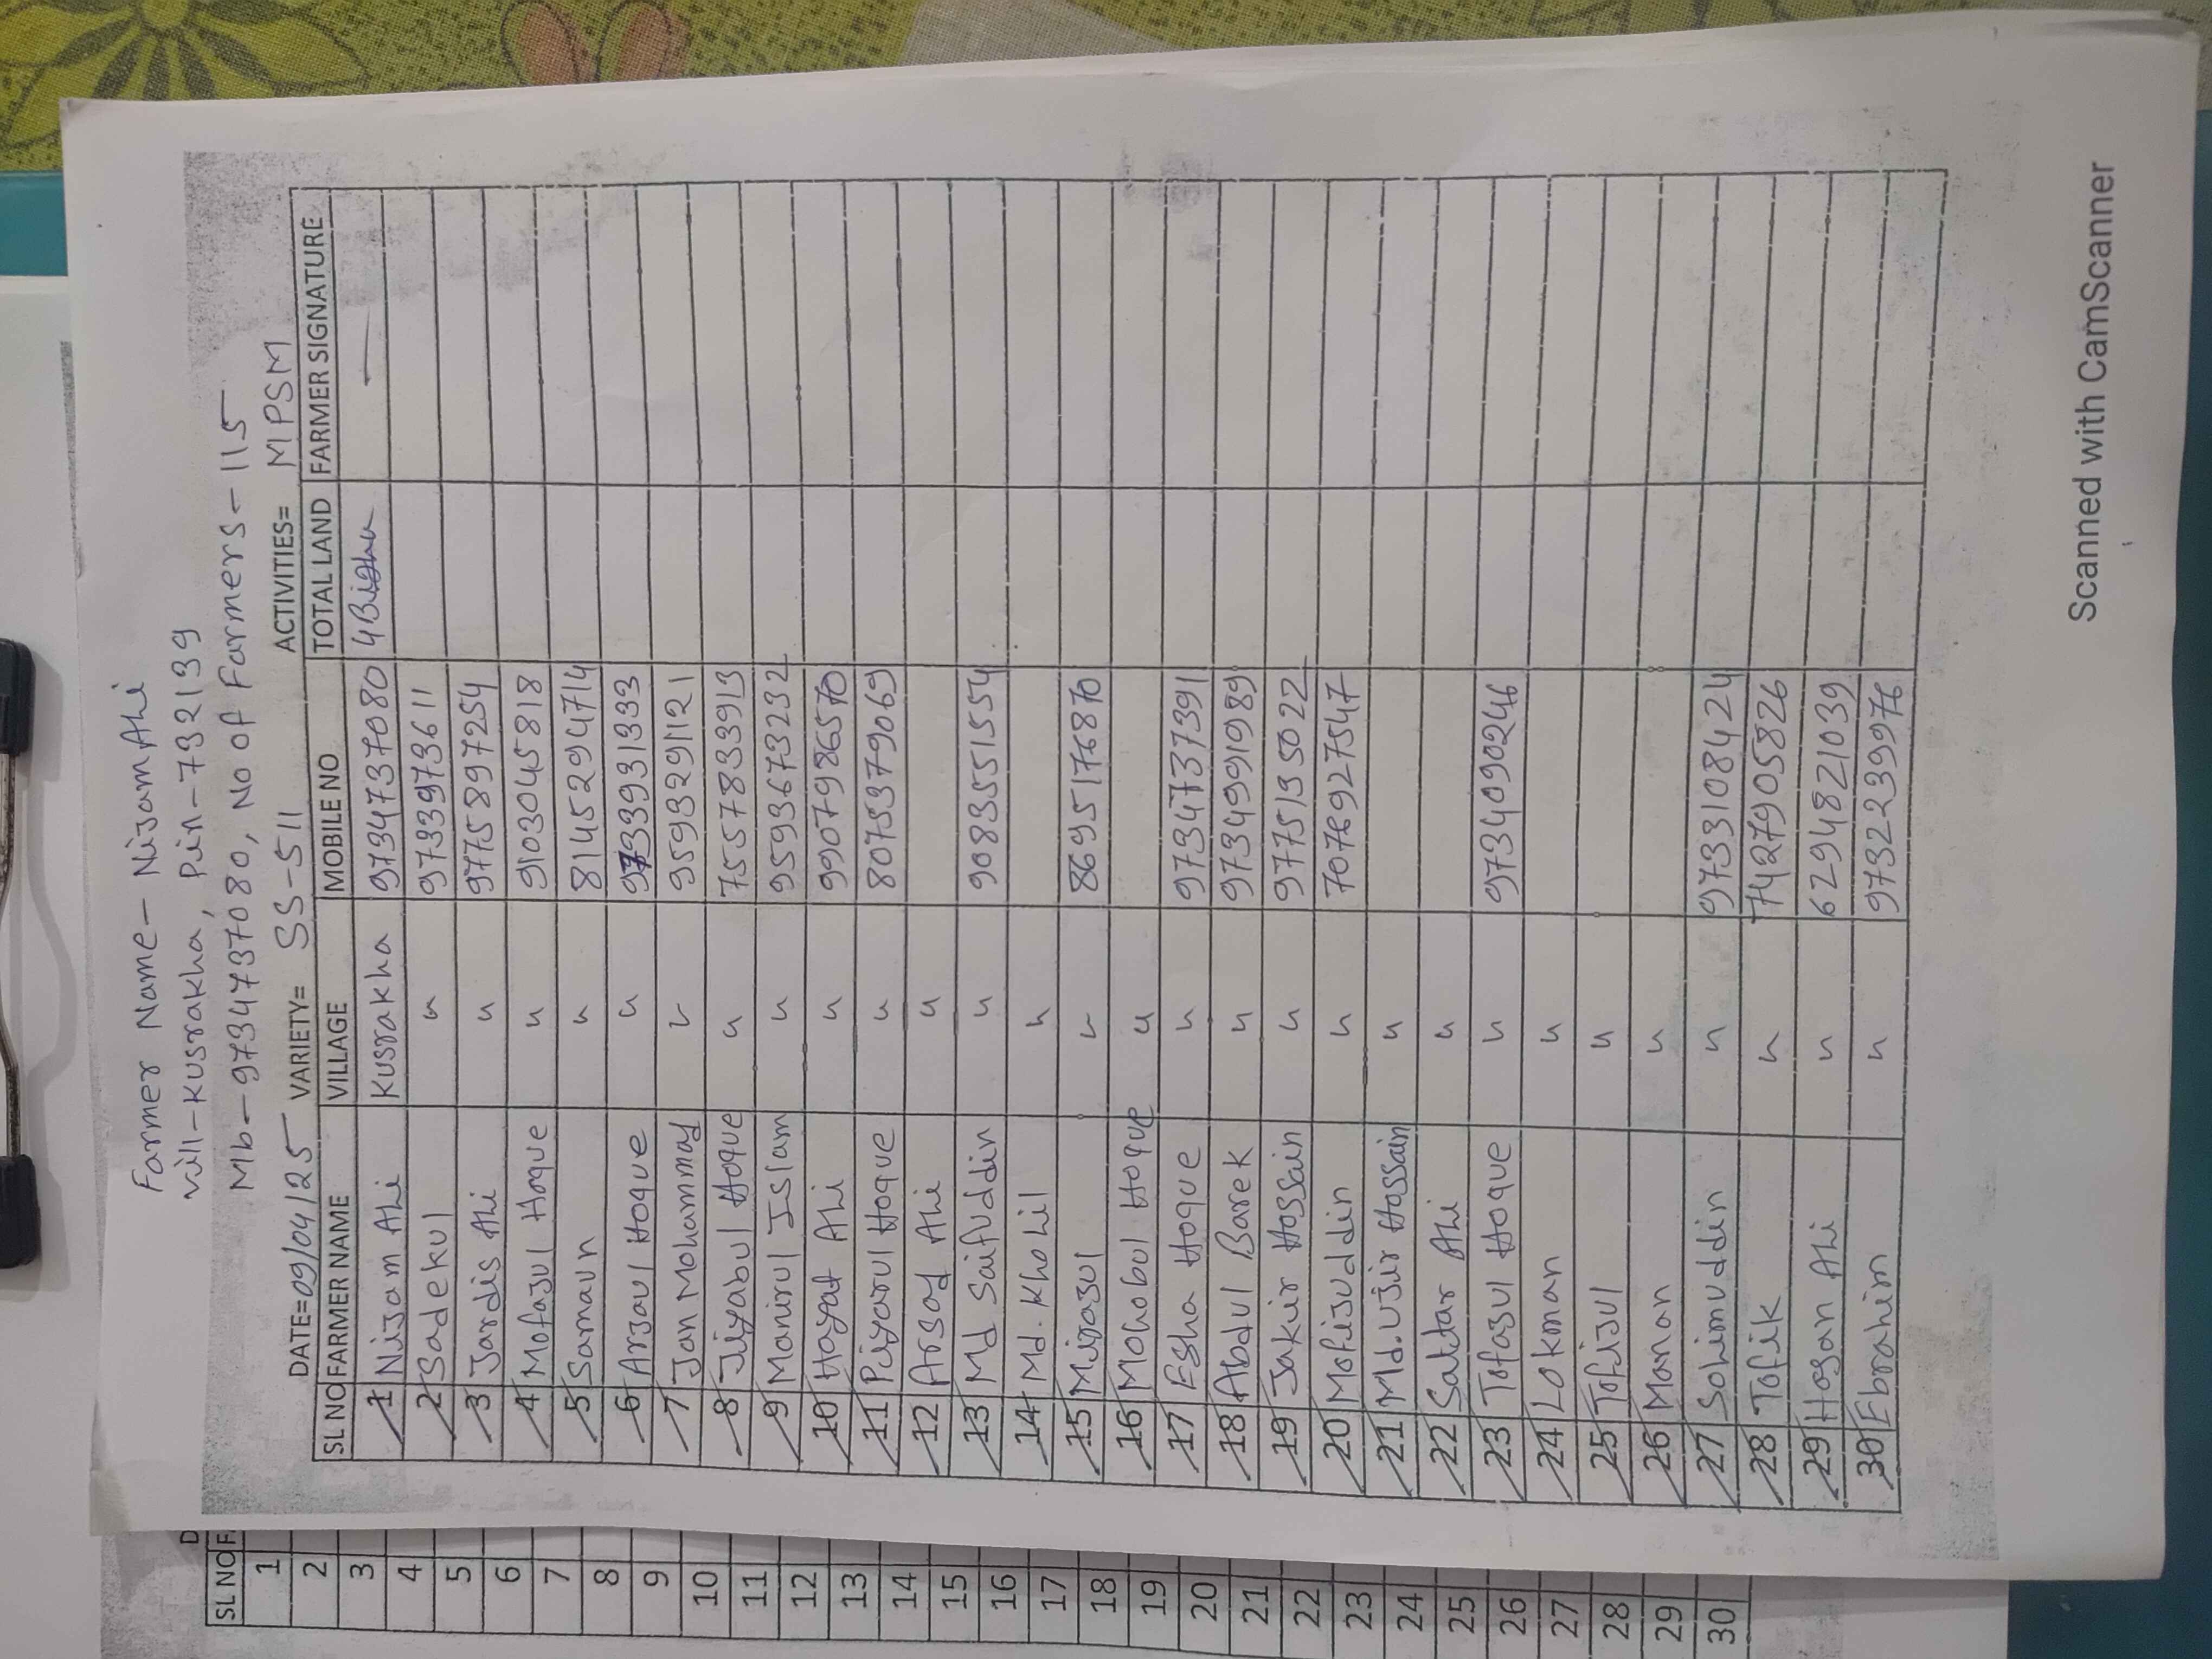 Farmer Name- Nijam Ali
Vill-Kusrakha, Pin-732139
Mb-9734737080, No of Farmers-115
DATE=09/04/25 VARIETY= SS-511 ACTIVITIES= MPSM
SL NO FARMER NAME VILLAGE MOBILE NO TOTAL LAND FARMER SIGNATURE
1 Nijam Ali Kusrakha 9734737080 4 Bigha —
2 Sadekul " 9733973611
3 Jardis Ali " 9775897254
4 Mofajul Hoque " 9103045818
5 Samaun " 8145294714
6 Arjaul Hoque " 9733931333
7 Jan Mohammad " 9593291121
8 Jiyabul Hoque " 7557833913
9 Manirul Islam " 9593673232
10 Hayat Ali " 9907986570
11 Piyarul Hoque " 8075379069
12 Arsad Ali "
13 Md Saifuddin " 9083551554
14 Md. Kholil "
15 Mirajul " 8695176870
16 Mohobul Hoque "
17 Esha Hoque " 9734737391
18 Abdul Barek " 9734991989
19 Jakir Hossain " 9775135022
20 Mofijuddin " 7076927547
21 Md. Ujir Hossain "
22 Sattar Ali "
23 Tofajul Hoque " 9734090246
24 Lokman "
25 Tofijul "
26 Manan "
27 Sohimuddin " 9733108424
28 Tofik " 7427905826
29 Hasan Ali " 6294821039
30 Ebrahim " 9732239976
Scanned with CamScanner
SL NO
1
2
3
4
5
6
7
8
9
10
11
12
13
14
15
16
17
18
19
20
21
22
23
24
25
26
27
28
29
30